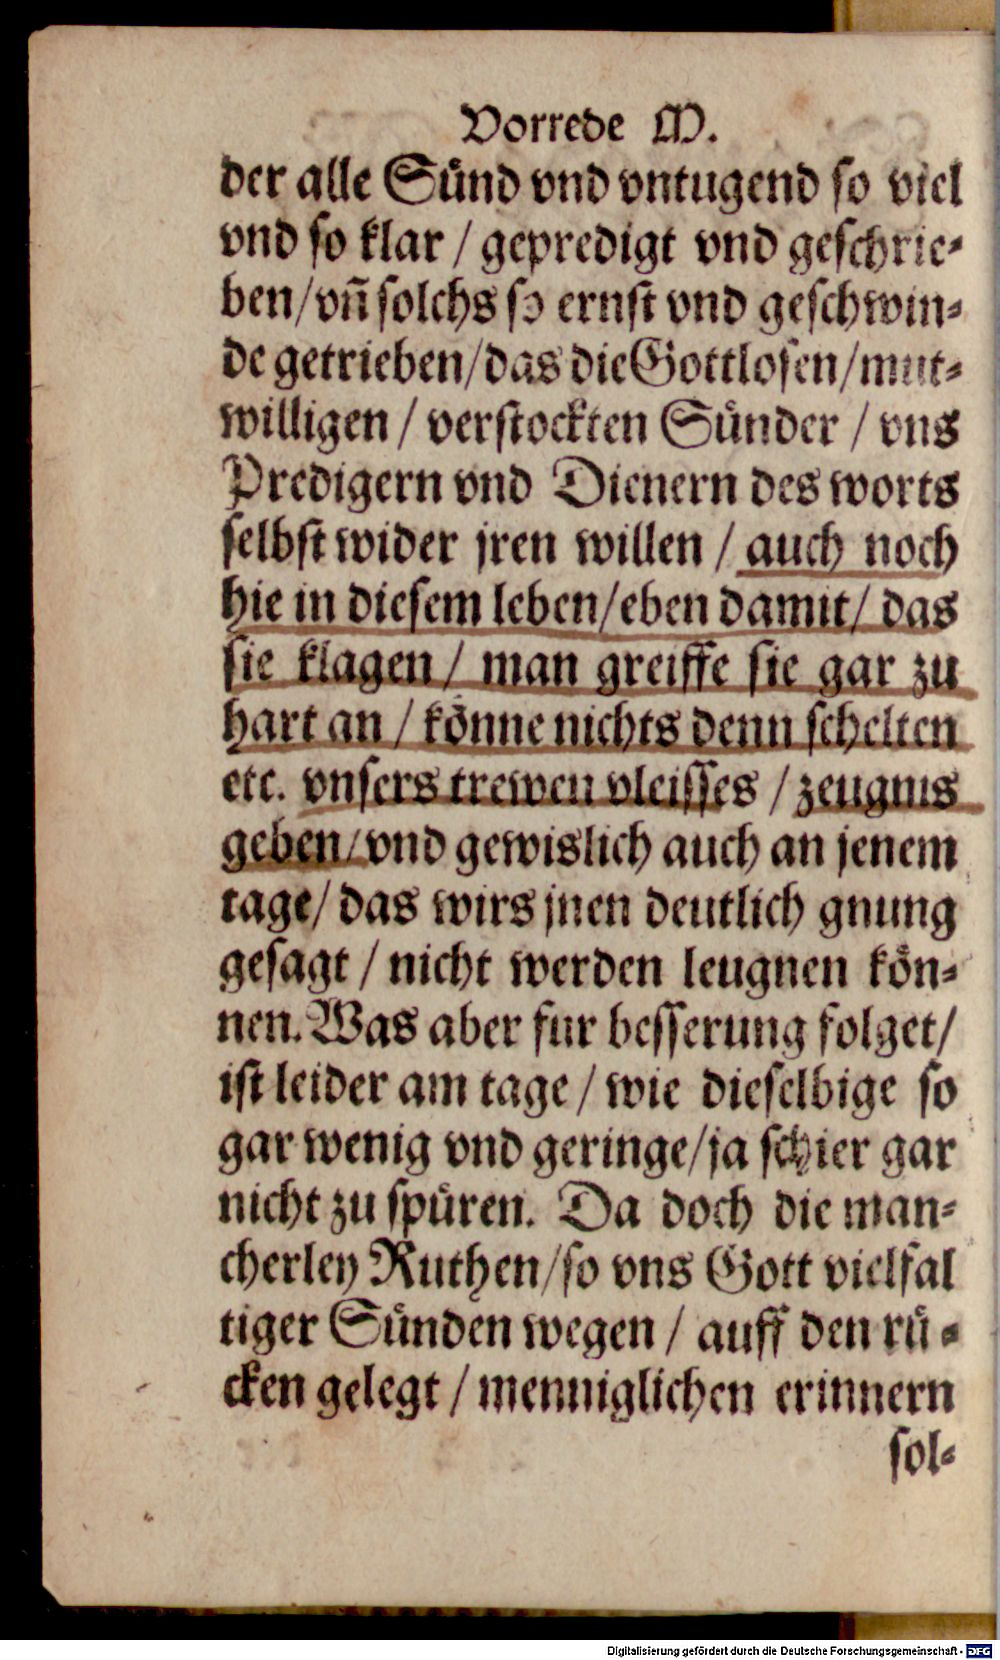 Vorrede M.
der alle Sünd vnd vntugend so viel
vnd so klar / gepredigt vnd geschrie-
ben/vñ solchs so ernst vnd geschwin-
de getrieben/das die Gottlosen/mut-
willigen / verstockten Sünder / vns
Predigern vnd Dienern des worts
selbst wider jren willen / auch noch
hie in diesem leben/eben damit/ das
sie klagen / man greiffe sie gar zu
hart an / könne nichts denn schelten
etc. vnsers trewen vleisses / zeugnis
geben/vnd gewislich auch an jenem
tage/ das wirs jnen deutlich gnung
gesagt / nicht werden leugnen kön-
nen. Was aber fur besserung folget/
ist leider am tage / wie dieselbige so
gar wenig vnd geringe/ja schier gar
nicht zu spüren. Da doch die man-
cherley Ruthen/so vns Gott vielfal
tiger Sünden wegen / auff den rü-
cken gelegt / menniglichen erinnern
sol-
Digitalisierung gefördert durch die Deutsche Forschungsgemeinschaft - DFG